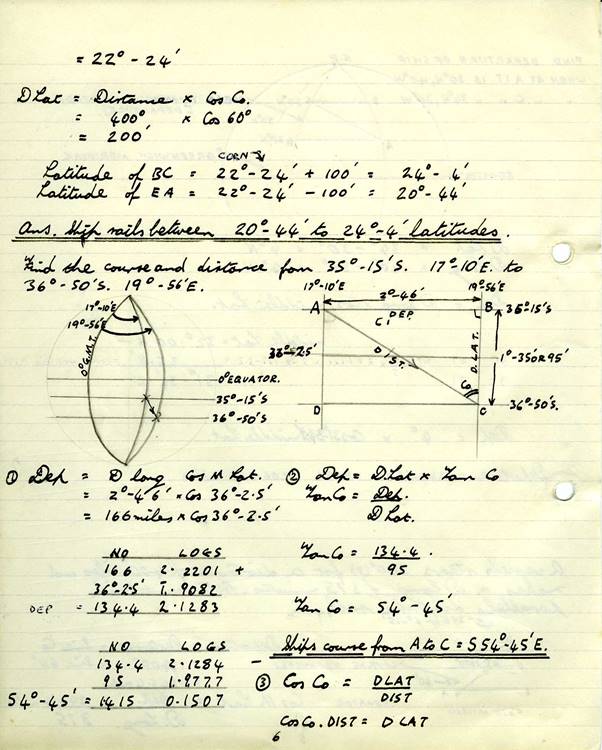 = 22° - 24′
D Lat = Distance × Cos Co.
= 400° × Cos 60°
= 200′
CORN S
Latitude of BC = 22° - 24′ + 100′ = 24° - 4′
Latitude of EA = 22° - 24′ - 100′ = 20° - 44′
Ans. Ship sails between 20° - 44′ to 24° - 4′ latitudes.
Find the course and distance from 35° - 15′ S. 17° - 10′ E. to
36° - 50′ S. 19° - 56′ E.
17° - 10′ E
19° - 56′ E
0° G.M.T.
0° EQUATOR.
35° - 15′ S
36° - 50′ S
17° - 10′ E
19° - 56′ E
2° - 46′
A
DEP.
B
35° - 15′ S
DIST.
D. LAT.
1° - 35′ OR 95′
Co
D
C
36° - 50′ S.
① Dep = D long Cos M Lat.
= 2° - 46′ × Cos 36° - 2·5′
= 166 miles × Cos 36° - 2·5′
NO LOGS
166 2·2201 +
36° - 2·5′ 1̄·9082
DEP = 134·4 2·1283
NO LOGS
134·4 2·1284
95 1·9777 -
54° - 45′ = 1415 0·1507
② Dep = D Lat × Tan Co
Tan Co = Dep.
D Lat.
Tan Co = 134·4
95
Tan Co = 54° - 45′
Ships course from A to C = S 54° - 45′ E.
③ Cos Co = D LAT
DIST
Cos Co. DIST = D LAT
6